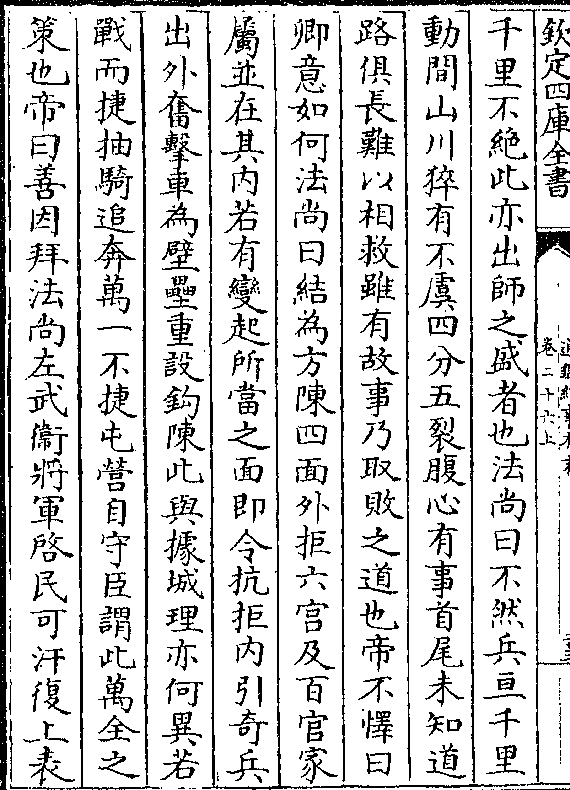 欽定四庫全書
卷二十六上
千里不絶此亦出師之盛者也法尚曰不然兵亘千里
動間山川猝有不虞四分五裂腹心有事首尾未知道
路俱長難以相救雖有故事乃取敗之道也帝不懌曰
卿意如何法尚曰結為方陳四面外拒六宫及百官家
屬並在其内若有變起所當之面即令抗拒内引奇兵
出外奮擊車為壁壘重設鈎陳此與據城理亦何異若
戰而捷抽騎追奔萬一不捷屯營自守臣謂此萬全之
策也帝曰善因拜法尚左武衞將軍啓民可汗復上表